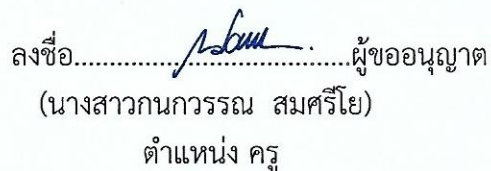 ลงชื่อ.......................................ผู้ขออนุญาต
(นางสาวกนกวรรณ สมศรีโย)
ตำแหน่ง ครู